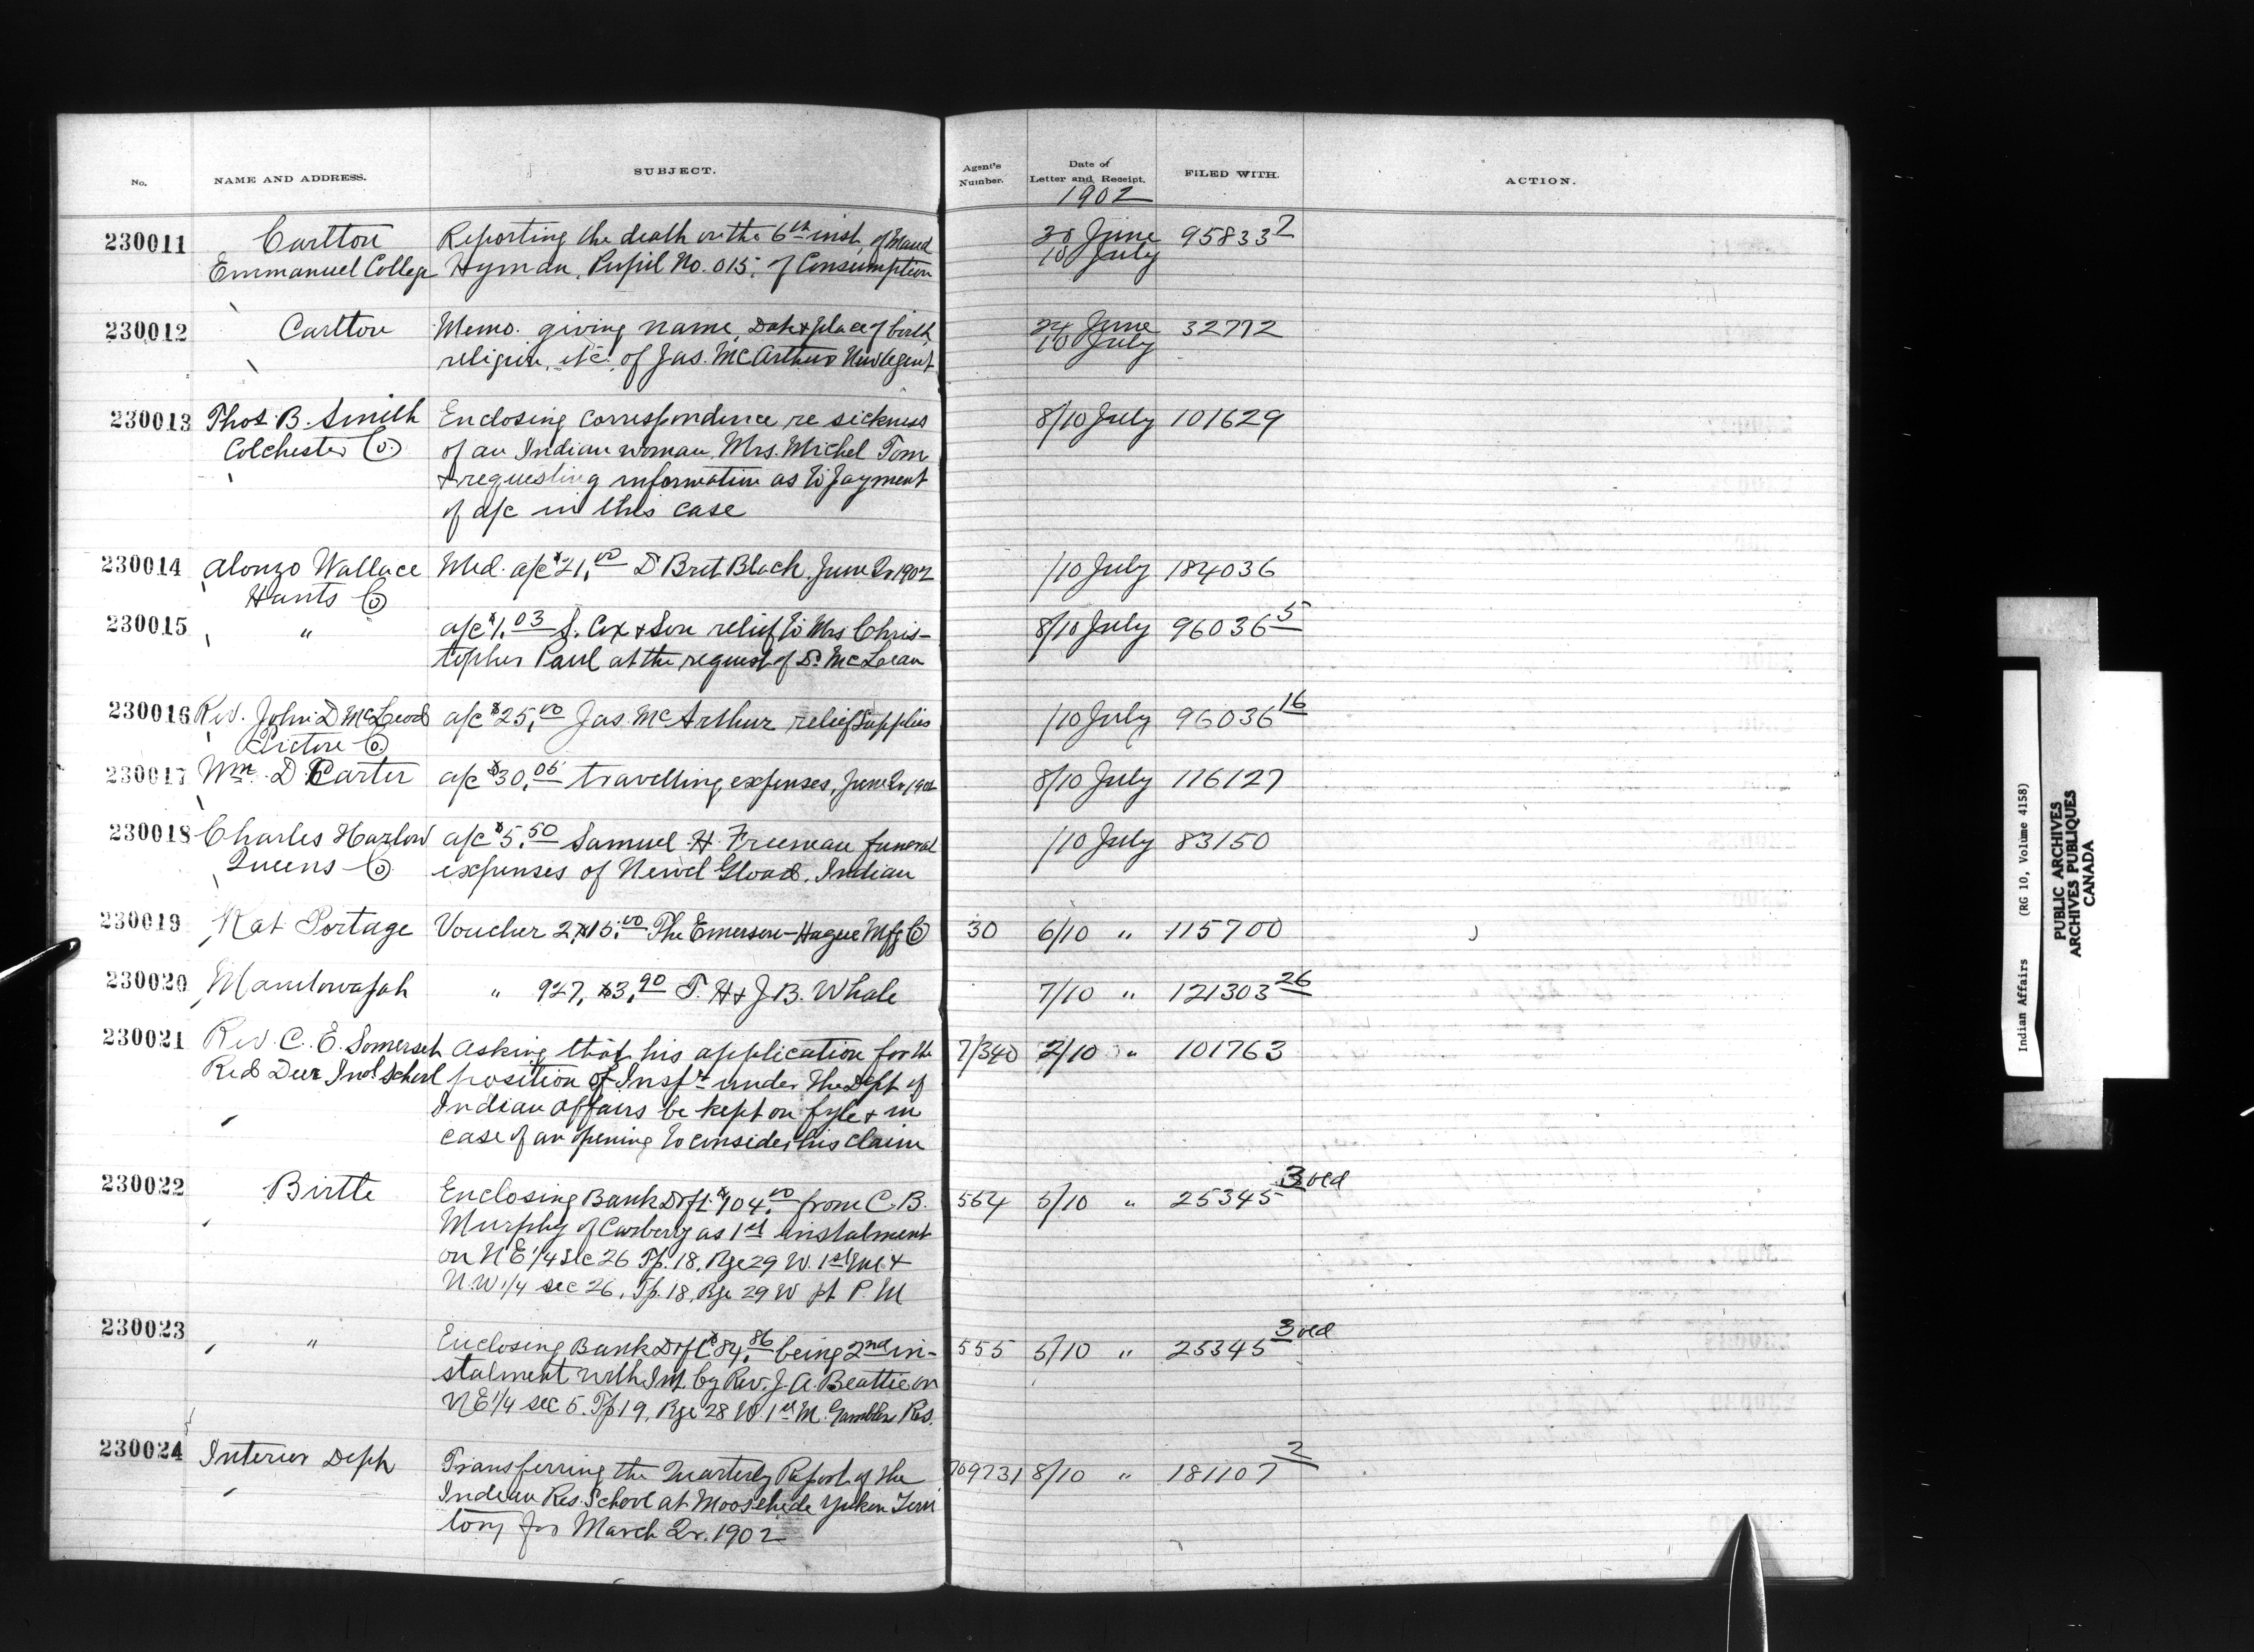 No. NAME AND ADDRESS. SUBJECT. Agent's Number. Date of Letter and Receipt. FILED WITH. ACTION.
1902
230011 Carlton Reporting the death on the 6th inst, of Maud 30 June 95833 2
Emmanuel College Hyman, Pupil No. 015, of Consumption 10 July
230012 Carlton Memo. giving name, Date & place of birth, 24 June 32772
religion, etc, of Jas. McArthur New Agent 10 July
230013 Thos. B. Smith Enclosing correspondence re sickness 8/10 July 101629
Colchester Co. of an Indian woman, Mrs. Michel Tom
& requesting information as to payment
of a/c in this case
230014 Alonzo Wallace Med. a/c $21.00 Dr Bret Black June Qr 1902 /10 July 184036
Hants Co
230015 " a/c $1.03 S. Cox & Son relief to Mrs Chris- 8/10 July 96036 5
topher Paul at the request of Dr. McLean
230016 Rev. John D McLeod a/c $25.00 Jas. McArthur relief supplies /10 July 96036 16
Pictou Co.
230017 Wm. D Carter a/c $30.05 travelling expenses, June Qr 1902 8/10 July 116127
230018 Charles Harlow a/c $5.50 Samuel H. Freeman funeral /10 July 83150
Queens Co. expenses of Newel Gload, Indian
230019 Rat Portage Voucher 2, $15.00 The Emerson-Hague Mfg Co 30 6/10 " 115700
230020 Manitowapah " 927, $3.90 T. H & J B. Whale 7/10 " 121303 26
230021 Rev. C. E. Somerset Asking that his application for the 7/340 2/10 " 101763
Red Deer Indl School position of Inspr under the Dept of
Indian Affairs be kept on fyle & in
case of an opening to consider his claim
230022 Birtle Enclosing Bank Dft. $104.00 from C. B. 554 5/10 " 25345 3 old
Murphy of Carberry as 1st instalment
on N E 1/4 sec 26 Tp. 18, Rge 29 W. 1st M. &
N.W 1/4 sec 26, Tp. 18, Rge 29 W P. M
230023 " Enclosing Bank Dft $84.86 being 2nd in- 555 5/10 " 25345 3 old
stalment with Int. by Rev. J. A. Beattie on
N E 1/4 sec 5. Tp 19, Rge 28 W. 1st M. Gamblers Res.
230024 Interior Dept Transferring the Quarterly Report of the 709731 8/10 " 181107 2
Indian Res. School at Moosehide Yukon Terri
tory for March Qr. 1902
Indian Affairs (RG 10, Volume 4158)
PUBLIC ARCHIVES
ARCHIVES PUBLIQUES
CANADA